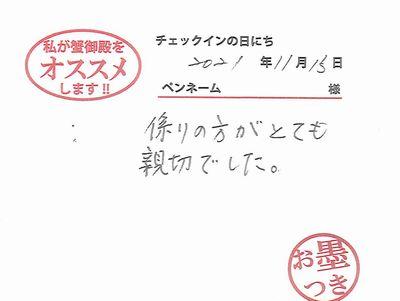 私が蟹御殿を
オススメ
します!!
チェックインの日にち
2021 年 11 月 15 日
ペンネーム 様
係りの方がとても
親切でした。
お墨
つき